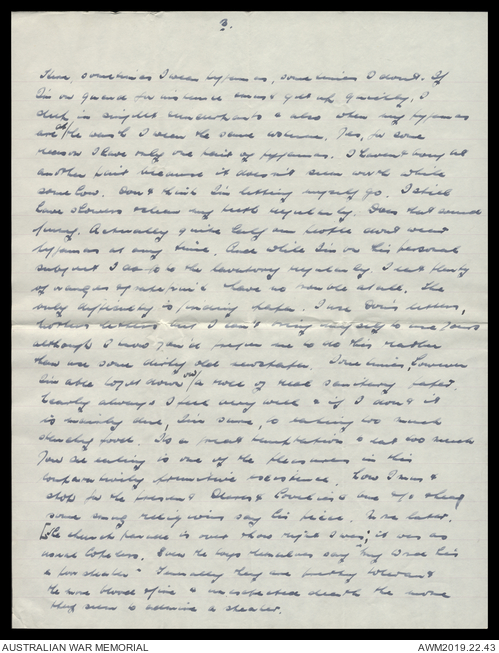 3.
Dear, sometimes I wear pyjamas, sometimes I don't. If
I'm on guard for instance & must get up quickly, I
sleep in singlet underpants & also when my pyjamas
are at the wash I wear the same costume. Yes, for some
reason I have only one pair of pyjamas. I haven't bought
another pair because it doesn't seem worth while
somehow. Don't think I'm letting myself go. I still
have showers & clean my teeth regularly. Does that sound
funny. Actually quite half our people don't wear
pyjamas at any time. And while I'm on this personal
subject I do go to the lavatory regularly. I eat plenty
of oranges & grapefruit & have no trouble at all. The
only difficulty is finding paper. I use letters,
mothers letters but I can't bring myself to use yours
although I know you'd prefer me to do this rather
than use some dirty old newspaper. Sometimes, however
I'm able to get down on a roll of real sanitary paper.
Nearly always I feel very well & if I don't it
is mainly due, I'm sure, to eating too much
starchy food. It's a great temptation to eat too much
You see eating is one of the pleasures in this
comparatively primitive existence. Now I must
stop for the present Dearest & one up & hear
some smug religious say his piece. More later.
[The church parade is over & how right I was; it was as
usual hopeless. Even the boys themselves say "My word he's
a poor dealer" Usually they are pretty tolerant
the more blood & unexpected death the more
they seem to admire a dealer.
AUSTRALIAN WAR MEMORIAL
AWM2019.22.43